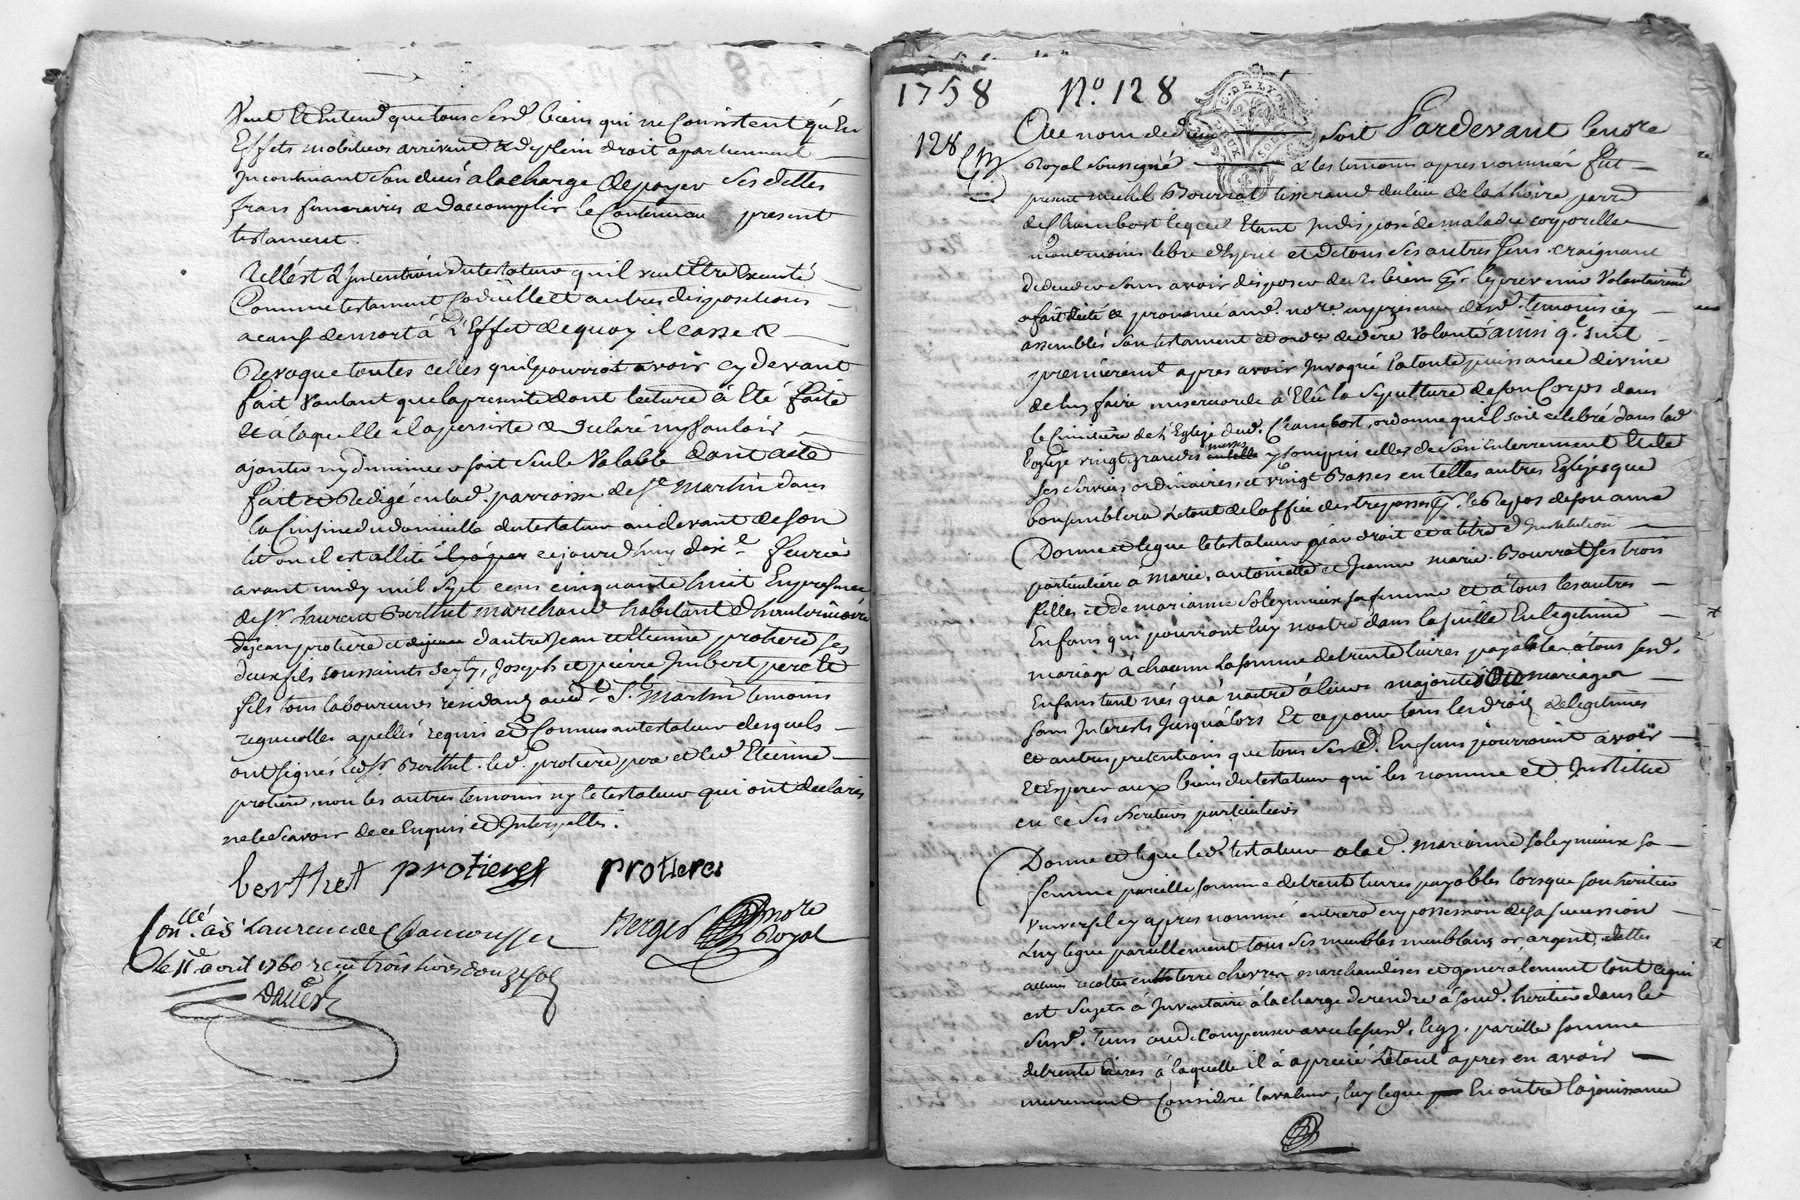 Veut et Entend que tous sesd. biens qui ne Consistent qu'En
Effets mobiliers arrivent & de plein droit apartiennent
Incontinant son decès a la charge de payer ses dettes
frais funeraires & d'accomplir le Contenu au present
testament.
Telle est L'Intention du testateur qu'il veut Etre Executé
Comme testament Codicille et autres dispositions
a cause de mort à L'Effet de quoy il casse &
Revoque toutes celles qu'il pourroit avoir cy devant
fait Voulant que la presente dont lecture à Eté faite
Et a laquelle il a persisté & declaré n'y vouloir
ajouter ny diminuer soit seule Valable dont acte
fait et Redigé en lad. parroisse de St Martin dans
la Cuisine du domicille du testateur au devant de son
lit ou il est allité cejourd'huy dixe fevrier
avant midy mil sept cens cinquante huit En presence
de Sr. Laurent Berthet marchand habitant d'hauterivoire
de jean protiere et d'autre Jean et Etienne protiere ses
deux fils toussaints Joseph et pierre Imbert pere et
fils tous laboureurs residants aud. St Martin temoins
requis et Connus au testateur desquels
ont signés led. Sr. Berthet. led. protiere pere et led. Etienne
protiere, non les autres temoins ny le testateur qui ont declarés
ne le sçavoir de ce Enquis et Interpellés.
berthet protieres protieres
Conllé. à St Laurent de Chamousset Berger nore Royal
le 11e avril 1760 reçu trois livres
1758 No. 128
G. DE LYON
128
Au nom de dieu soit Pardevant le nore
Royal soussigné & les temoins apres nommés fut
present michel Bourrat tisserand du lieu de la Lhoire parre
de Chambost lequel Etant Indisposé de maladie corporelle
neantmoins libre d'Esprit et de tous ses autres sens craignant
de deceder sans avoir disposer de ses biens pr. les prevenir Volontairement
a fait dicté & prononcé aud. nore. en presence desd. temoins icy
assemblés son testament et ordce de dere Volonté ainsi q. suit
premièrement apres avoir Invoqué la toute puissance divine
de luy faire misericorde à Elû la sepulture de son Corps dans
le Cimitiere de L'Eglise dud. Chambost, ordonne qu'il soit celebré dans lad
Eglise vingt grandes messes y compris celles de son Enterrement Et de
ses services ordinaires et vingt Basses en telles autres Eglises que
bon semblera Letout de l'office des trepassés pr. le Repos de son ame
Donne et legue le testateur par droit et a titre d'Institution
particuliere a Marie, antoinette et Jeanne marie Bourrat ses trois
filles et de marianne Soleymieux sa femme et à tous les autres
Enfans qui pourront luy naitre dans la suitte En legitime
mariage à chacun La somme de trente livres payables à tous sesd.
Enfans tant nés qu'à naitre à leurs majorités ou mariages
sans Interests Jusqu'alors Et ce pour tous les droits de legitimes
et autres pretentions que tous sesd. Enfans pourroient avoir
Et Esperer aux biens du testateur qui les nomme et Institue
en ce ses heritiers particuliers
Donne et legue led. testateur a lad. marianne Soleymieux sa
femme pareille somme de trente livres payables lorsque son heritier
Universel cy apres nommé entrera en possession de sa succession
Luy legue pareillement tous ses meubles meublans or, argent, dettes
actives recoltes en terre chevres marchandises et generalement tout ce qui
est sujets à Inventaire à la charge de rendre à sond. heritier dans le
susd. Tems ou de Compenser avec le susd. legs. pareille somme
de trente livres à laquelle il à aprecié Letout apres en avoir
meurement Consideré la valeur, luy legue En outre la jouissance